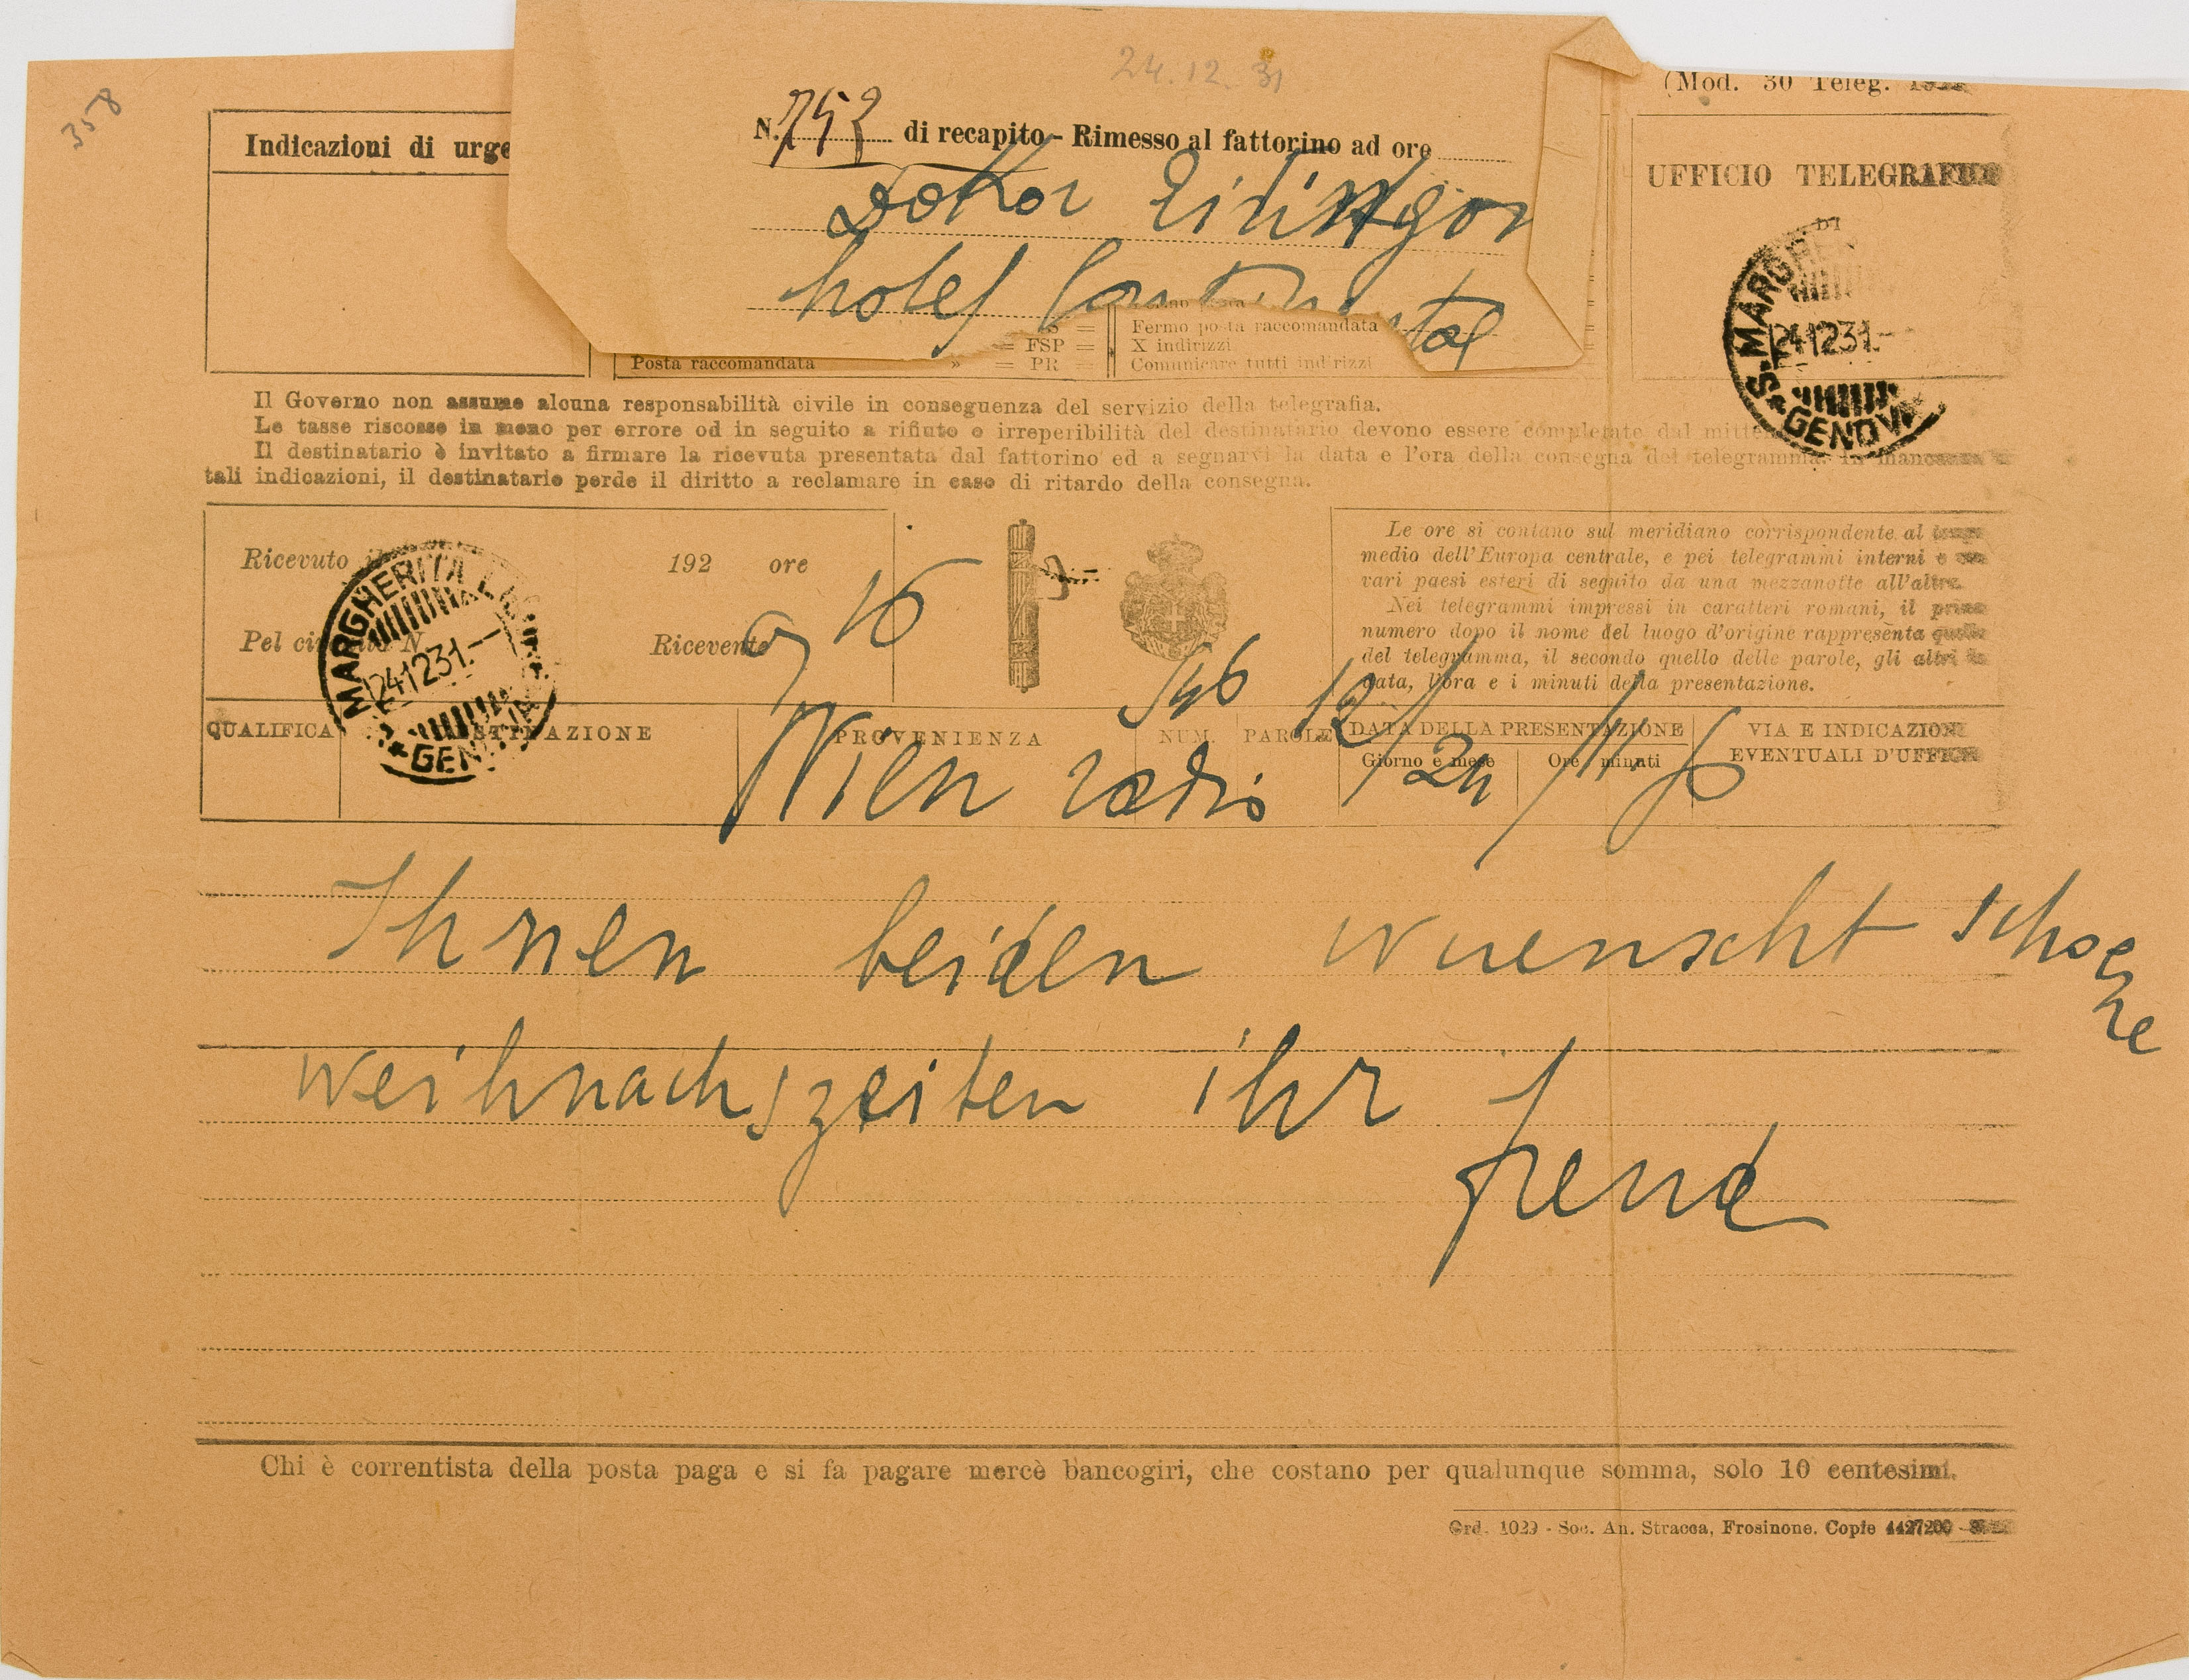 358
24.12.31
(Mod. 30 Teleg.
Indicazioni di urge
N. 753 di recapito - Rimesso al fattorino ad ore
Doktor Eitingon
hotel Continental
UFFICIO TELEGRAFICO
DI
S. MARGHE
241231.-
GENOVA
FSP = Fermo posta raccomandata
X indirizzi
Posta raccomandata » = PR = Comunicare tutti indirizzi
Il Governo non assume alcuna responsabilità civile in conseguenza del servizio della telegrafia.
Le tasse riscosse in meno per errore od in seguito a rifiuto o irreperibilità del destinatario devono essere completate dal mitten
Il destinatario è invitato a firmare la ricevuta presentata dal fattorino ed a segnarvi la data e l'ora della consegna del telegramma. In mancanza
tali indicazioni, il destinatario perde il diritto a reclamare in caso di ritardo della consegna.
Ricevuto il 192 ore
16
Pel circuito N Ricevente
MARGHERITA LIG
241231.-
GENOVA
Le ore si contano sul meridiano corrispondente al tempo
medio dell'Europa centrale, e pei telegrammi interni e
vari paesi esteri di seguito da una mezzanotte all'altra.
Nei telegrammi impressi in caratteri romani, il primo
numero dopo il nome del luogo d'origine rappresenta quello
del telegramma, il secondo quello delle parole, gli altri la
data, l'ora e i minuti della presentazione.
QUALIFICA DESTINAZIONE PROVENIENZA NUM. PAROLE DATA DELLA PRESENTAZIONE VIA E INDICAZIONI
Giorno e mese Ore minuti EVENTUALI D'UFFICIO
Wien radio 546 12/ 24 / 11
Ihnen beiden wuenscht schoene
weihnachszeiten ihr
freud
Chi è correntista della posta paga e si fa pagare mercè bancogiri, che costano per qualunque somma, solo 10 centesimi.
Ord. 1029 - Soc. An. Stracca, Frosinone. Copie 4427200